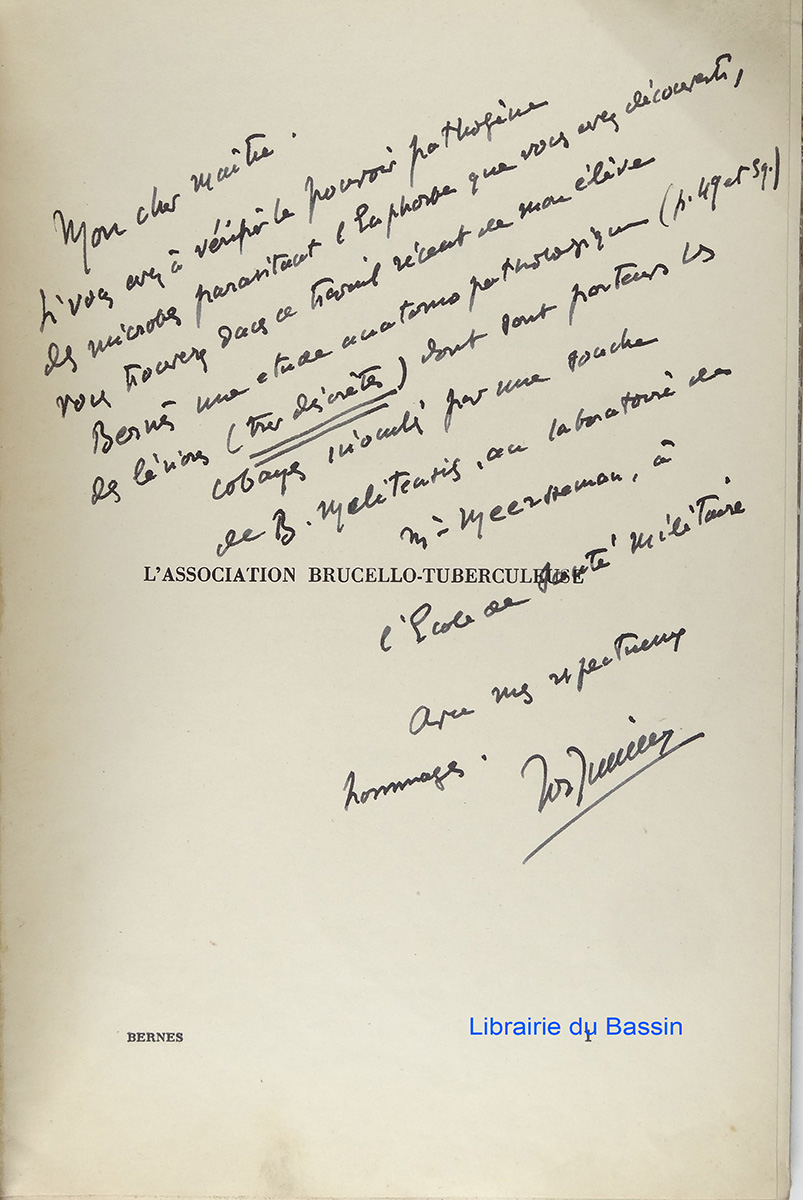 Mon cher maître.
Si vous avez à vérifier le pouvoir pathogène
des microbes parasitant l'Euphorbe que vous avez découverts,
vous trouverez dans ce travail récent de mon élève
Bernès une étude anatomo pathologique (p. 49 et sq.)
des lésions (très discrètes) dont sont porteurs les
cobayes inoculés par une souche
de B. Melitensis, au laboratoire de
Mr Meersseman, à
l'École de Santé Militaire
Avec mes respectueux
hommages.
L'ASSOCIATION BRUCELLO-TUBERCULEUSE
BERNES
1
Librairie du Bassin